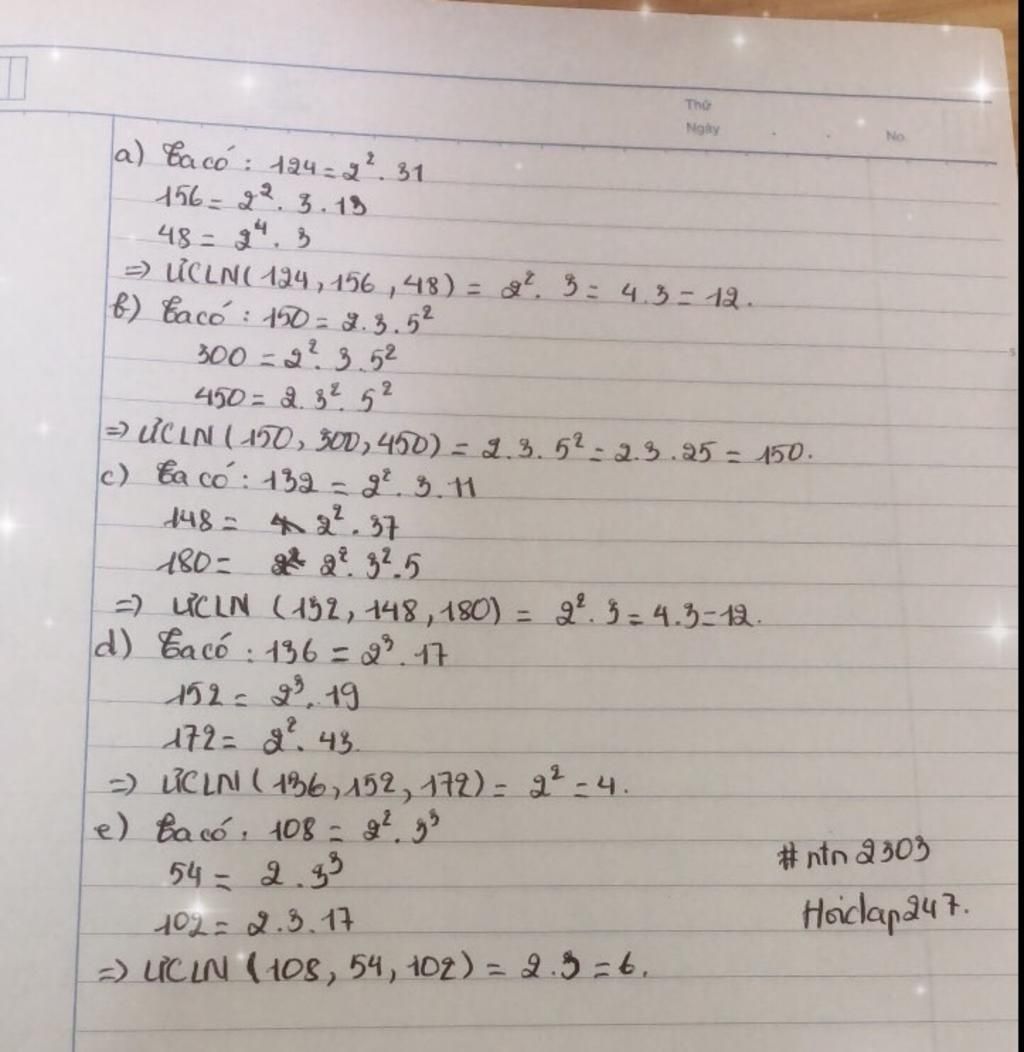 Thứ
Ngày . . No
a) Ta có : 124 = 2² . 31
156 = 2² . 3 . 13
48 = 2⁴ . 3
=> ƯCLN(124, 156, 48) = 2² . 3 = 4.3 = 12.
b) Ta có : 150 = 2.3.5²
300 = 2² . 3 . 5²
450 = 2.3² . 5²
=> ƯCLN(150, 300, 450) = 2.3.5² = 2.3.25 = 150.
c) Ta có : 132 = 2² . 3 . 11
148 = 2² . 37
180 = 2² . 3² . 5
=> ƯCLN (132, 148, 180) = 2² . 3 = 4.3 = 12.
d) Ta có : 136 = 2³ . 17
152 = 2³ . 19
172 = 2² . 43
=> ƯCLN(136, 152, 172) = 2² = 4.
e) Ta có : 108 = 2² . 3³
54 = 2 . 3³
102 = 2.3.17
=> ƯCLN (108, 54, 102) = 2.3 = 6.
#ntn2303
Hoiclap247.